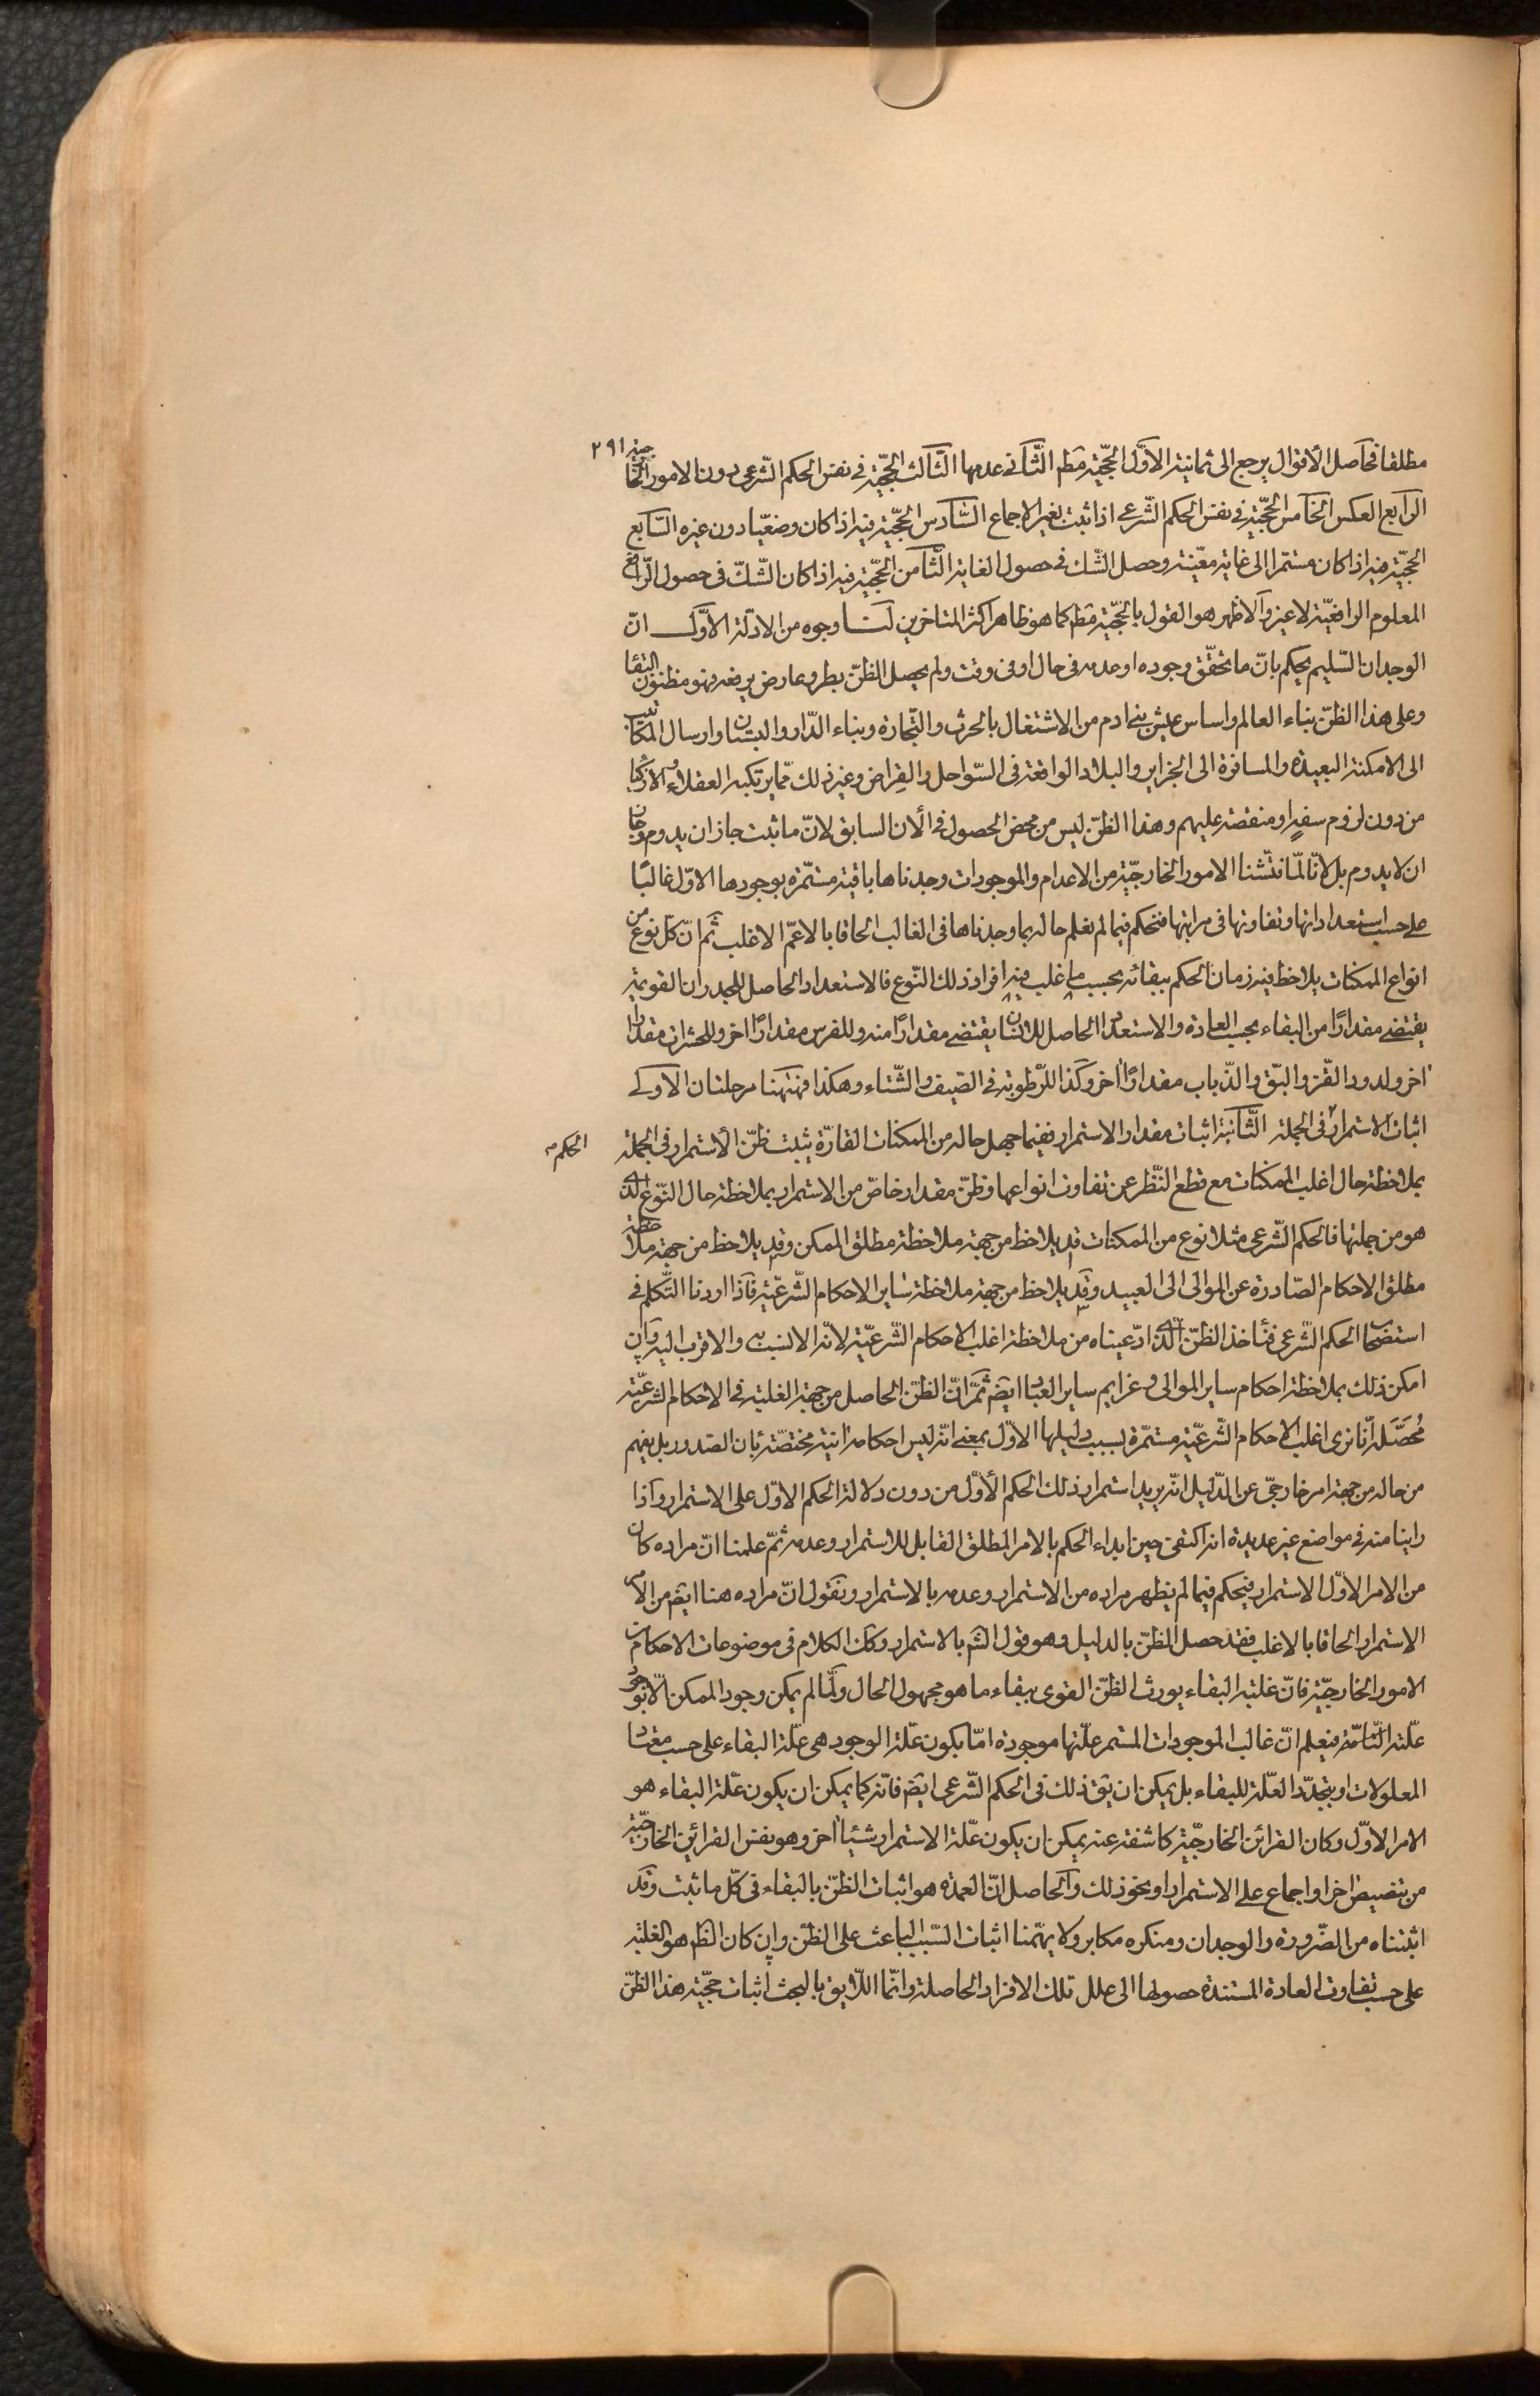 ٢٩١
مطلقا فحاصل الأقوال يرجع الى ثمانية الاوّل الحجّية مط الثّانى عدمها الثّالث الحجّية فى نفس الحكم الشّرعى دون الامور الخارجية
الرّابع العكس الخامس الحجّية فى نفس الحكم الشّرعى اذا ثبت بغير الاجماع السّادس الحجّية فيه اذا كان وضعيّا دون غيره السّابع
الحجّية فيه اذا كان مستمرا الى غاية معيّنة وحصل الشّك فى حصول الغاية الثّامن الحجّية فيه اذا كان الشّكّ فى حصول الرّافع
المعلوم الرافعيّة لا غير والاظهر هو القول بالحجّية مط كما هو ظاهر اكثر المتاخرين لنا وجوه من الادلّة الأوّل انّ
الوجدان السّليم يحكم بانّ ما تحقّق وجوده او عدمه فى حال او فى وقت ولم يحصل الظنّ بطرو عارض يرفعه فهو مظنون البقاء
وعلى هذا الظنّ بناء العالم واساس عيش بنى ادم من الاشتغال بالحرث والتّجارة وبناء الدّار والبستان وارسال المكاتيب
الى الامكنة البعيدة والمسافرة الى الجزاير والبلاد الواقعة فى السّواحل والفراض وغير ذلك ممّا يرتكبه العقلاء والازكيا
من دون لزوم سفهٍ او منقصة عليهم وهذا الظنّ ليس من محض الحصول فى الأن السابق لانّ ما ثبت جاز ان يدوم وجاز
ان لا يدوم بل لانّا لمّا فتّشنا الامور الخارجيّة من الاعدام والموجودات وجدناها باقية مستمّرة بوجودها الاوّل غالبًا
على حسب استعداداتها وتفاوتها فى مراتبها فنحكم فيما لم نعلم حاله بما وجدناها فى الغالب الحاقا بالاعمّ الاغلب ثمّ انّ كلّ نوع من
انواع الممكنات يلاحظ فيه زمان الحكم ببقائه بحسب ما غلب فيه افراد ذلك النّوع فالاستعداد الحاصل للجدران القويمة
يقتضى مقدارًا من البقاء بحسب العادة والاستعداد الحاصل للانسان يقتضى مقدارًا منه وللفرس مقدارًا اخر وللحشرات مقدارا
اخر ولدود القزّ والبقّ والذّباب مقدارًا اخر وكذا للرّطوبة فى الصّيف والشّتاء وهكذا فههنا مرحلتان الاولى
اثبات الاستمرار فى الجملة الثّانية اثبات مقدار الاستمرار ففيما جهل حاله من الممكنات القارّة يثبت ظنّ الأستمرار فى الجملة
الحكم
بملاحظة حال اغلب الممكنات مع قطع النّظر عن تفاوت انواعها وظنّ مقدار خاصّ من الاستمرار بملاحظة حال النّوع الذى
هو من جملتها فالحكم الشّرعى مثلا نوع من الممكنات قد يلاحظ من جهة ملاحظة مطلق الممكن وقد يلاحظ من جهة ملاحظة
مطلق الاحكام الصّادرة عن الموالى الى العبيد وقد يلاحظ من جهة ملاحظة ساير الاحكام الشّرعيّة فاذا اردنا التّكلم فى
استصحاب الحكم الشّرعى فنأخذ الظنّ الّذى ادّعيناه من ملاحظة اغلب الاحكام الشّرعيّة لانّه الانسب به والاقرب اليه وان
امكن ذلك بملاحظة احكام ساير الموالى وعزايم ساير العباد ايضا ثمّ انّ الظنّ الحاصل من جهة الغلبة فى الاحكام الشرعيّة
مُحصَّله انّا نرى اغلب الاحكام الشّرعيّة مستمّرة بسبب دليلها الاوّل بمعنى انّه ليس احكاما انية مختصّة بان الصّدور بل يفهم
من حاله من جهة امر خارجىّ عن الدّليل انّه يريد استمرار ذلك الحكم الأوّل من دون دلالة الحكم الاوّل على الاستمرار واذا
راينا منه فى مواضع غير عديدة انه اكتفى حين ابداء الحكم بالامر المطلق القابل للاستمرار وعدمه ثمّ علمنا انّ مراده كان
من الامر الاوّل الاستمرار فنحكم فيما لم يظهر مراده من الاستمرار وعدمه بالاستمرار ونقول انّ مراده هنا ايض من الامر
الاستمرار الحاقا بالاغلب فقد حصل الظنّ بالدليل وهو قول الشّم بالاستمرار وكك الكلام فى موضوعات الاحكام من
الامور الخارجيّة فانّ غلبة البقاء يورث الظنّ القوى ببقاء ما هو مجهول الحال ولمّا لم يمكن وجود الممكن الّا بوجود
علّته التّامّة فنعلم انّ غالب الموجودات المستمر علّتها موجودة امّا بكون علّة الوجود هى علّة البقاء على حسب مقدار
المعلولات او بتجدّد العلّة للبقاء بل يمكن ان يق ذلك فى الحكم الشّرعى ايض فانّه كما يمكن ان يكون علّة البقاء هو
الامر الاوّل وكان القرائن الخارجيّة كاشفة عنه يمكن ان يكون علّة الاستمرار شيئا اخر وهو نفس القرائن الخارجيّة
من تنصيص اخر او اجماع على الاستمرار او نحو ذلك والحاصل انّ العمدة هو اثبات الظنّ بالبقاء فى كلّ ما ثبت وقد
اثبتناه من الضّرورة والوجدان ومنكره مكابر ولا يهمّنا اثبات السّبب الباعث على الظنّ وان كان الظ هو الغلبة
على حسب تفاوت العادة المستندة حصولها الى علل تلك الافراد الحاصلة وانّما اللّايق بالبحث اثبات حجّية هذا الظنّ